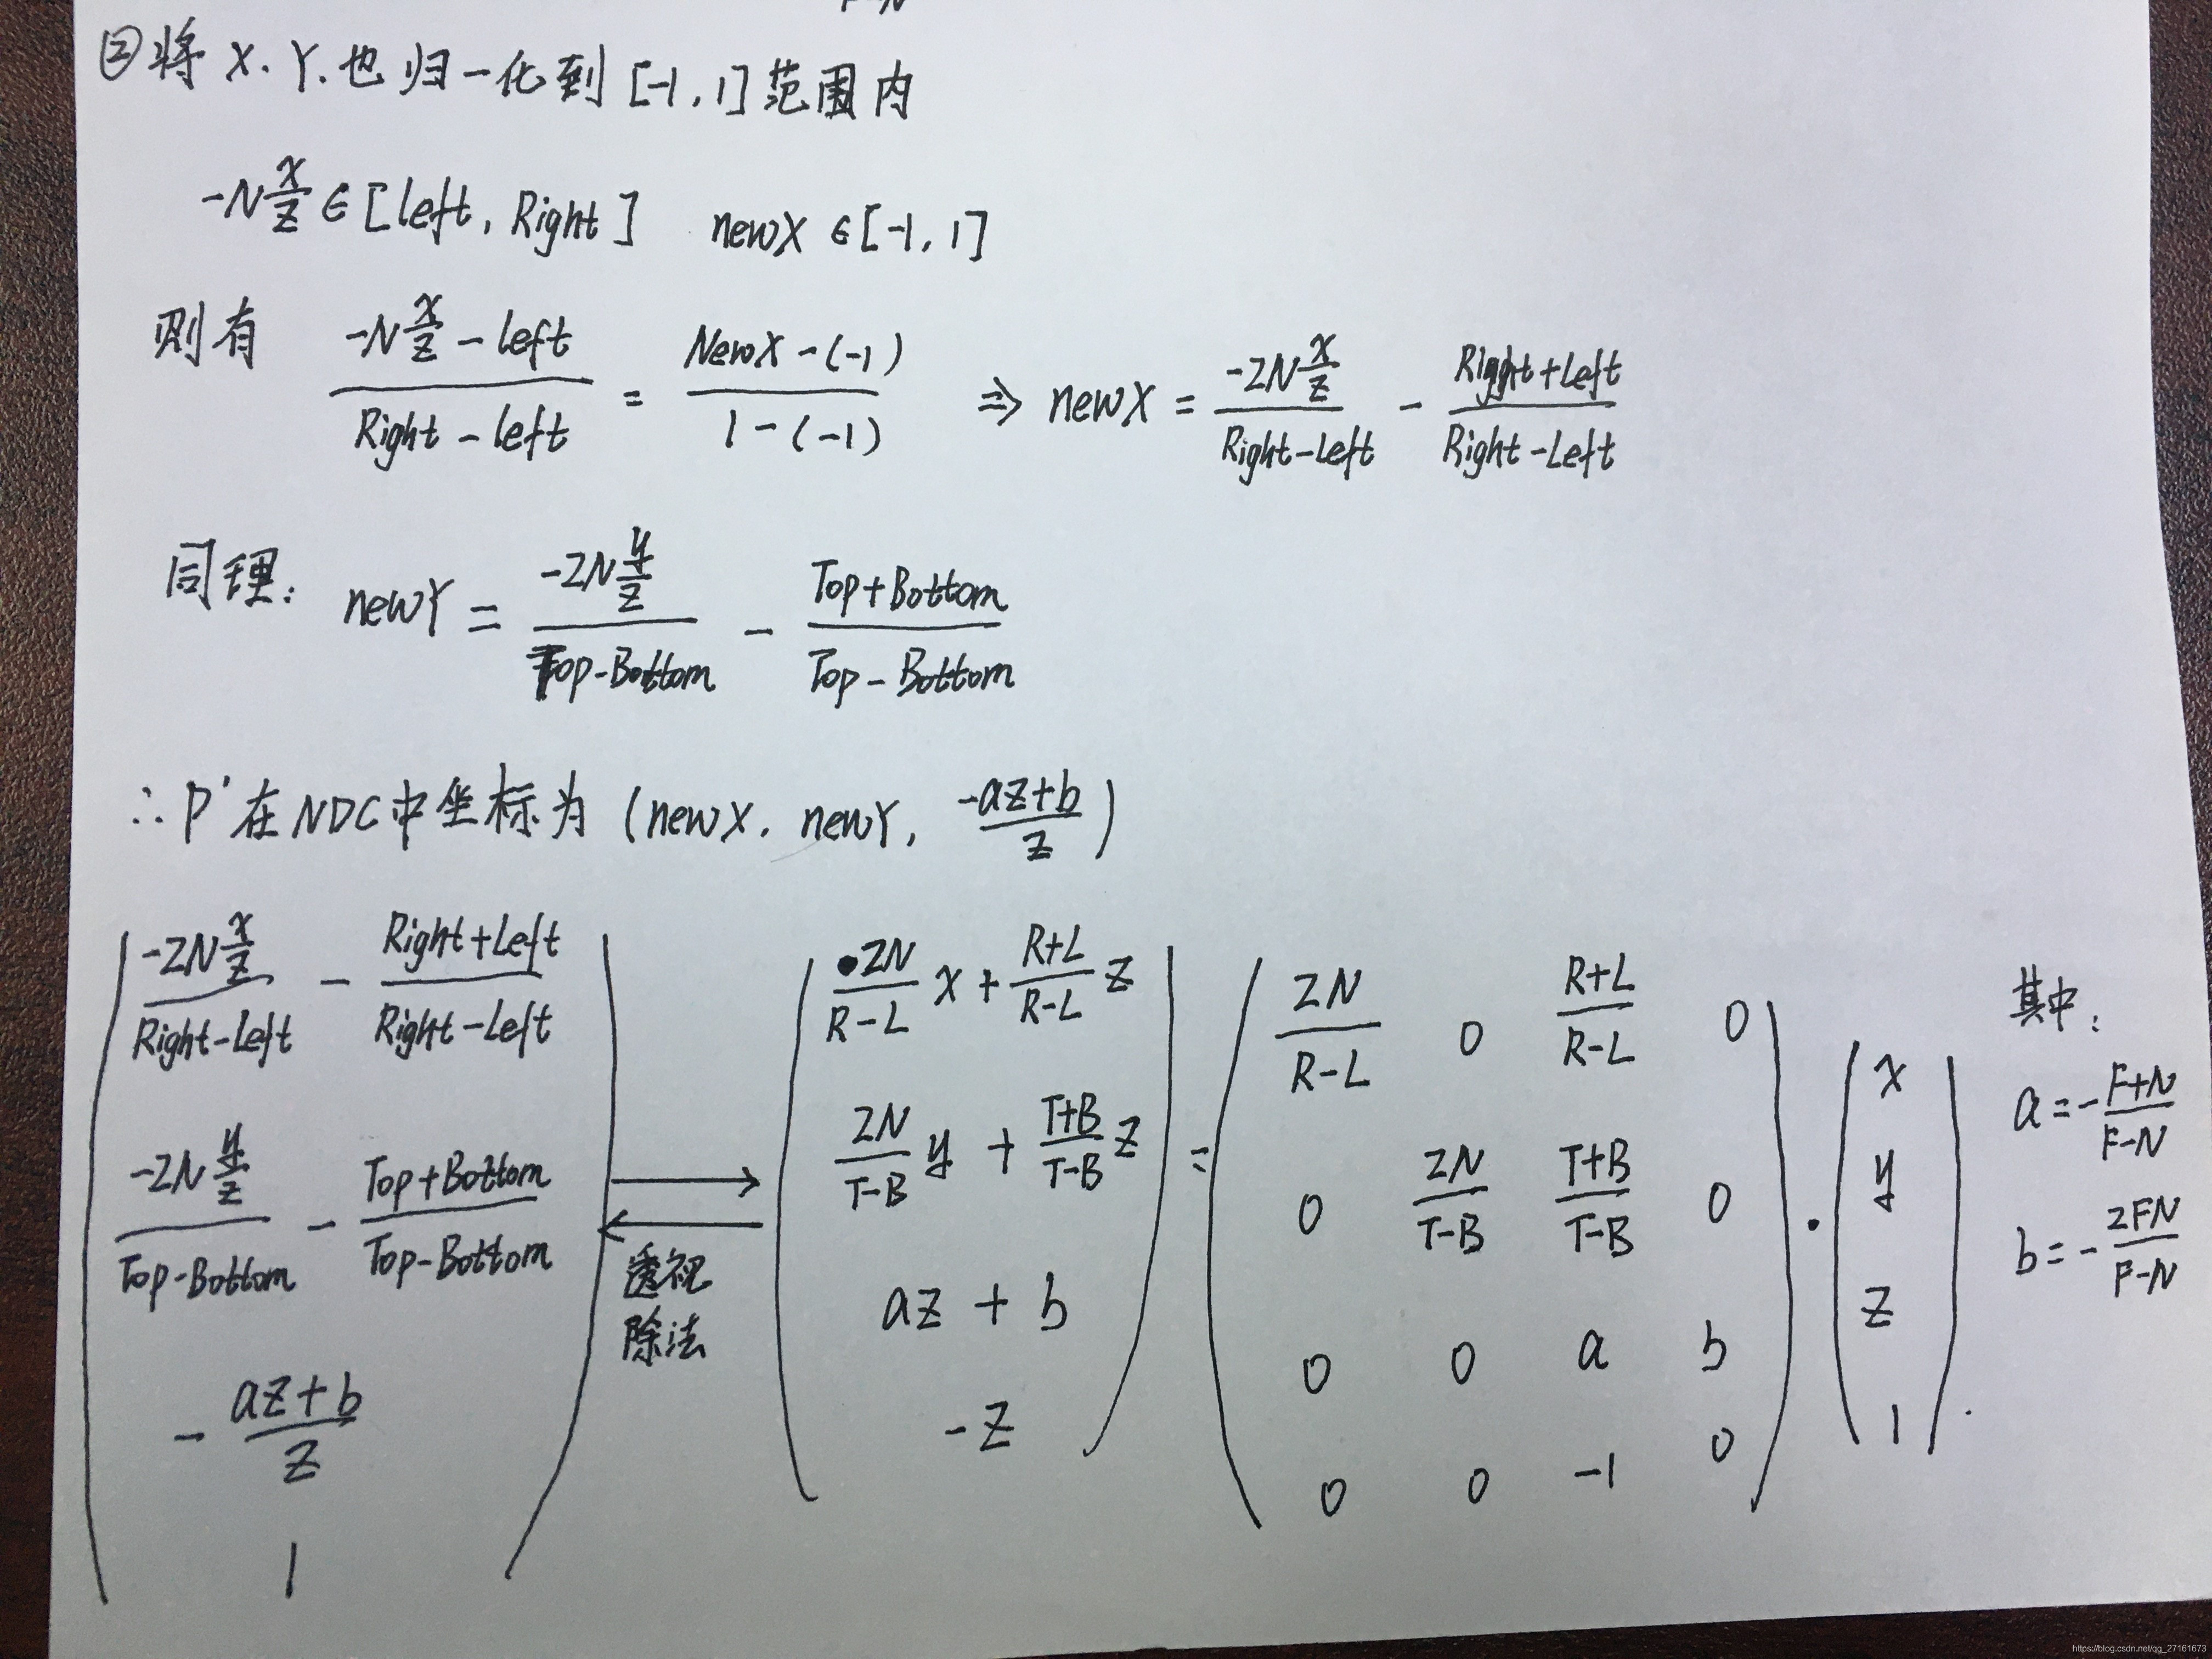 F-N
② 将 X.Y.也归一化到 [-1, 1] 范围内
-N x/z ∈ [left, Right]   newX ∈ [-1, 1]
则有 (-N x/z - left)/(Right - left) = (NewX - (-1))/(1 - (-1)) ⇒ newX = (-2N x/z)/(Right-Left) - (Right+Left)/(Right-Left)
同理: newY = (-2N y/z)/(Top-Bottom) - (Top+Bottom)/(Top-Bottom)
∴ P' 在 NDC 中坐标为 (newX, newY, (-az+b)/z)
( (-2N x/z)/(Right-Left) - (Right+Left)/(Right-Left)
(-2N y/z)/(Top-Bottom) - (Top+Bottom)/(Top-Bottom)
- (az+b)/z
1 )
→
←
透视
除法
( 2N/(R-L) x + (R+L)/(R-L) z
2N/(T-B) y + (T+B)/(T-B) z
az + b
-z )
=
( 2N/(R-L) 0 (R+L)/(R-L) 0
0 2N/(T-B) (T+B)/(T-B) 0
0 0 a b
0 0 -1 0 )
·
( x
y
z
1 ) .
其中:
a = - (F+N)/(F-N)
b = - 2FN/(F-N)
https://blog.csdn.net/qq_27161673